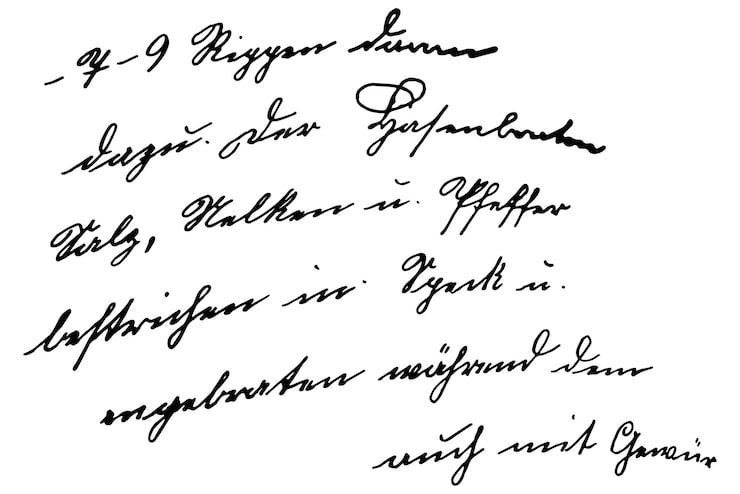 – 7 – 9 Rippen daran
dazu. Der Hasenbraten
Salz, Nelken u. Pfeffer
bestrichen in Speck u.
angebraten während dem
auch mit Gewür